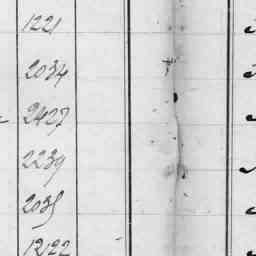 1221
2034
2427
2239
2035
12122